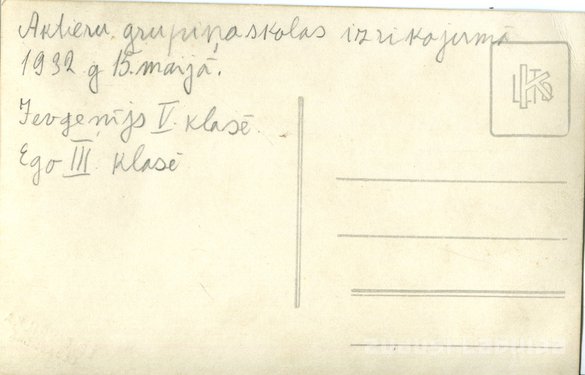 Aktieru grupiņa skolas izrikojumā
1932 g 15. maijā.
Jevgeņijs V. klasē.
Ego III klasē